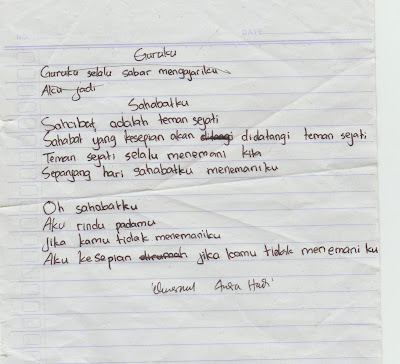 Guruku
Guruku selalu sabar mengajariku
Aku jadi
Sahabatku
Sahabat adalah teman sejati
Sahabat yang kesepian akan didatangi teman sejati
Teman sejati selalu menemani kita
Sepanjang hari sahabatku menemaniku
Oh sahabatku
Aku rindu padamu
Jika kamu tidak menemaniku
Aku kesepian jika kamu tidak menemaniku